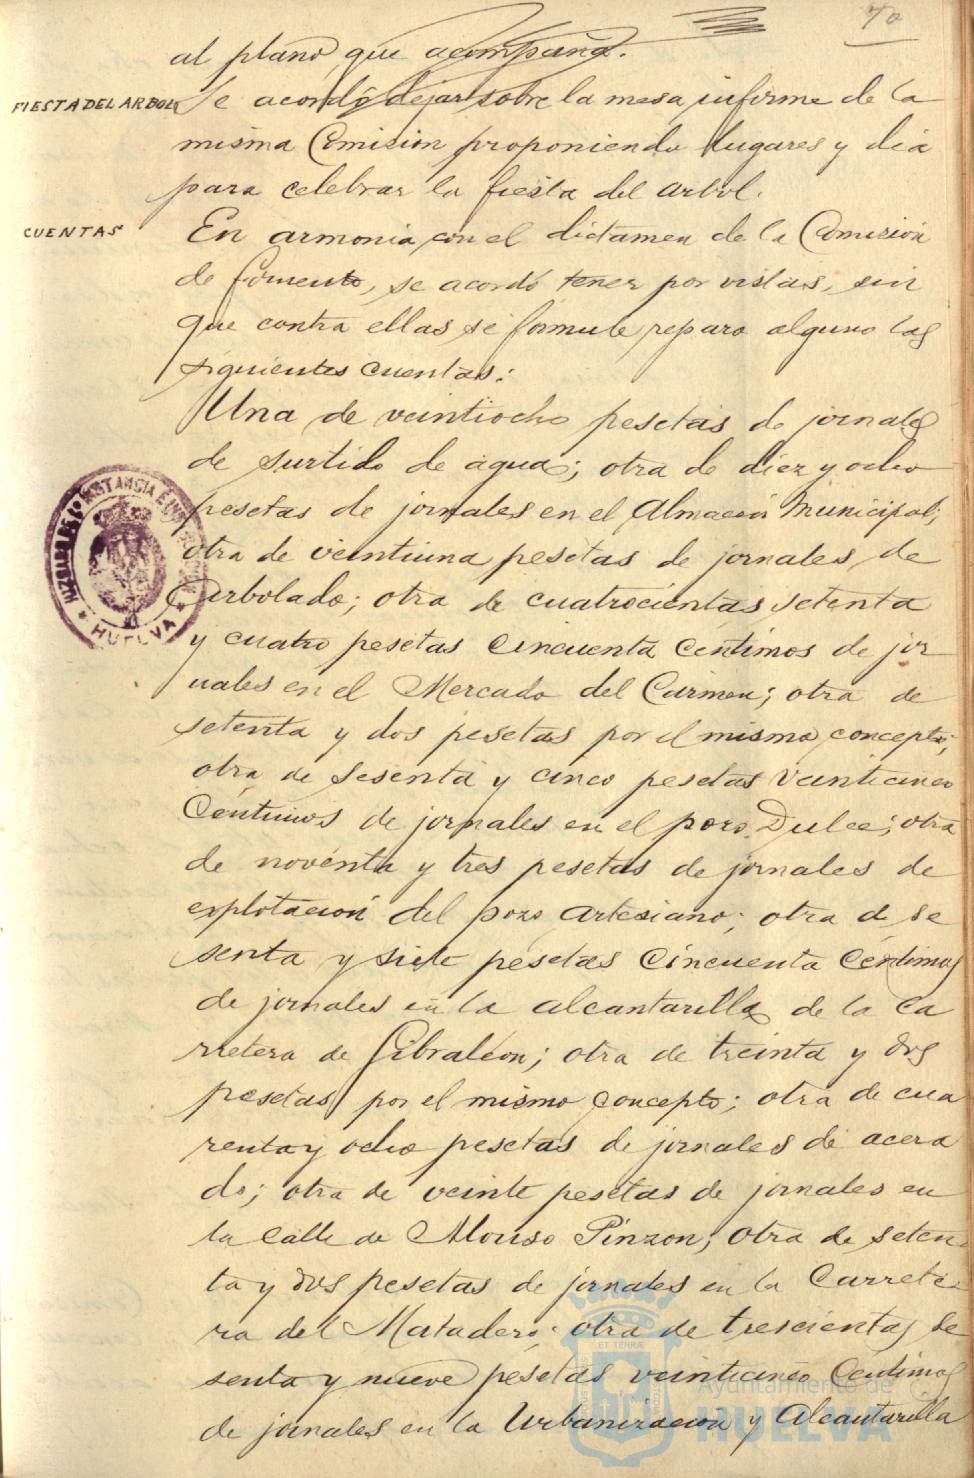 70
al plano que acompaña.
FIESTA DEL ARBOL
Se acordó dejar sobre la mesa informe de la
misma Comision proponiendo lugares y dia
para celebrar la fiesta del arbol.
CUENTAS
En armonia con el dictamen de la Comision
de fomento, se acordó tener por vistas, sin
que contra ellas se formule reparo alguno las
siguientes cuentas:
Una de veintiocho pesetas de jornales
de surtido de agua; otra de diez y ocho
pesetas de jornales en el Almacen Municipal;
otra de veintiuna pesetas de jornales de
Arbolado; otra de cuatrocientas setenta
y cuatro pesetas cincuenta centimos de jor
nales en el Mercado del Carmen; otra de
setenta y dos pesetas por el mismo concepto;
otra de sesenta y cinco pesetas veinticinco
centimos de jornales en el pozo Dulce; otra
de noventa y tres pesetas de jornales de
explotación del pozo artesiano; otra de se
senta y siete pesetas cincuenta centimos
de jornales en la alcantarilla de la ca
rretera de Gibraleon; otra de treinta y dos
pesetas por el mismo concepto; otra de cua
renta y ocho pesetas de jornales de acera
do; otra de veinte pesetas de jornales en
la calle de Alonso Pinzon; otra de seten
ta y dos pesetas de jornales en la Carrete
ra del Matadero; otra de trescientas se
senta y nueve pesetas veinticinco centimos
de jornales en la Urbanizacion y Alcantarilla
HUELVA
Ayuntamiento de
HUELVA